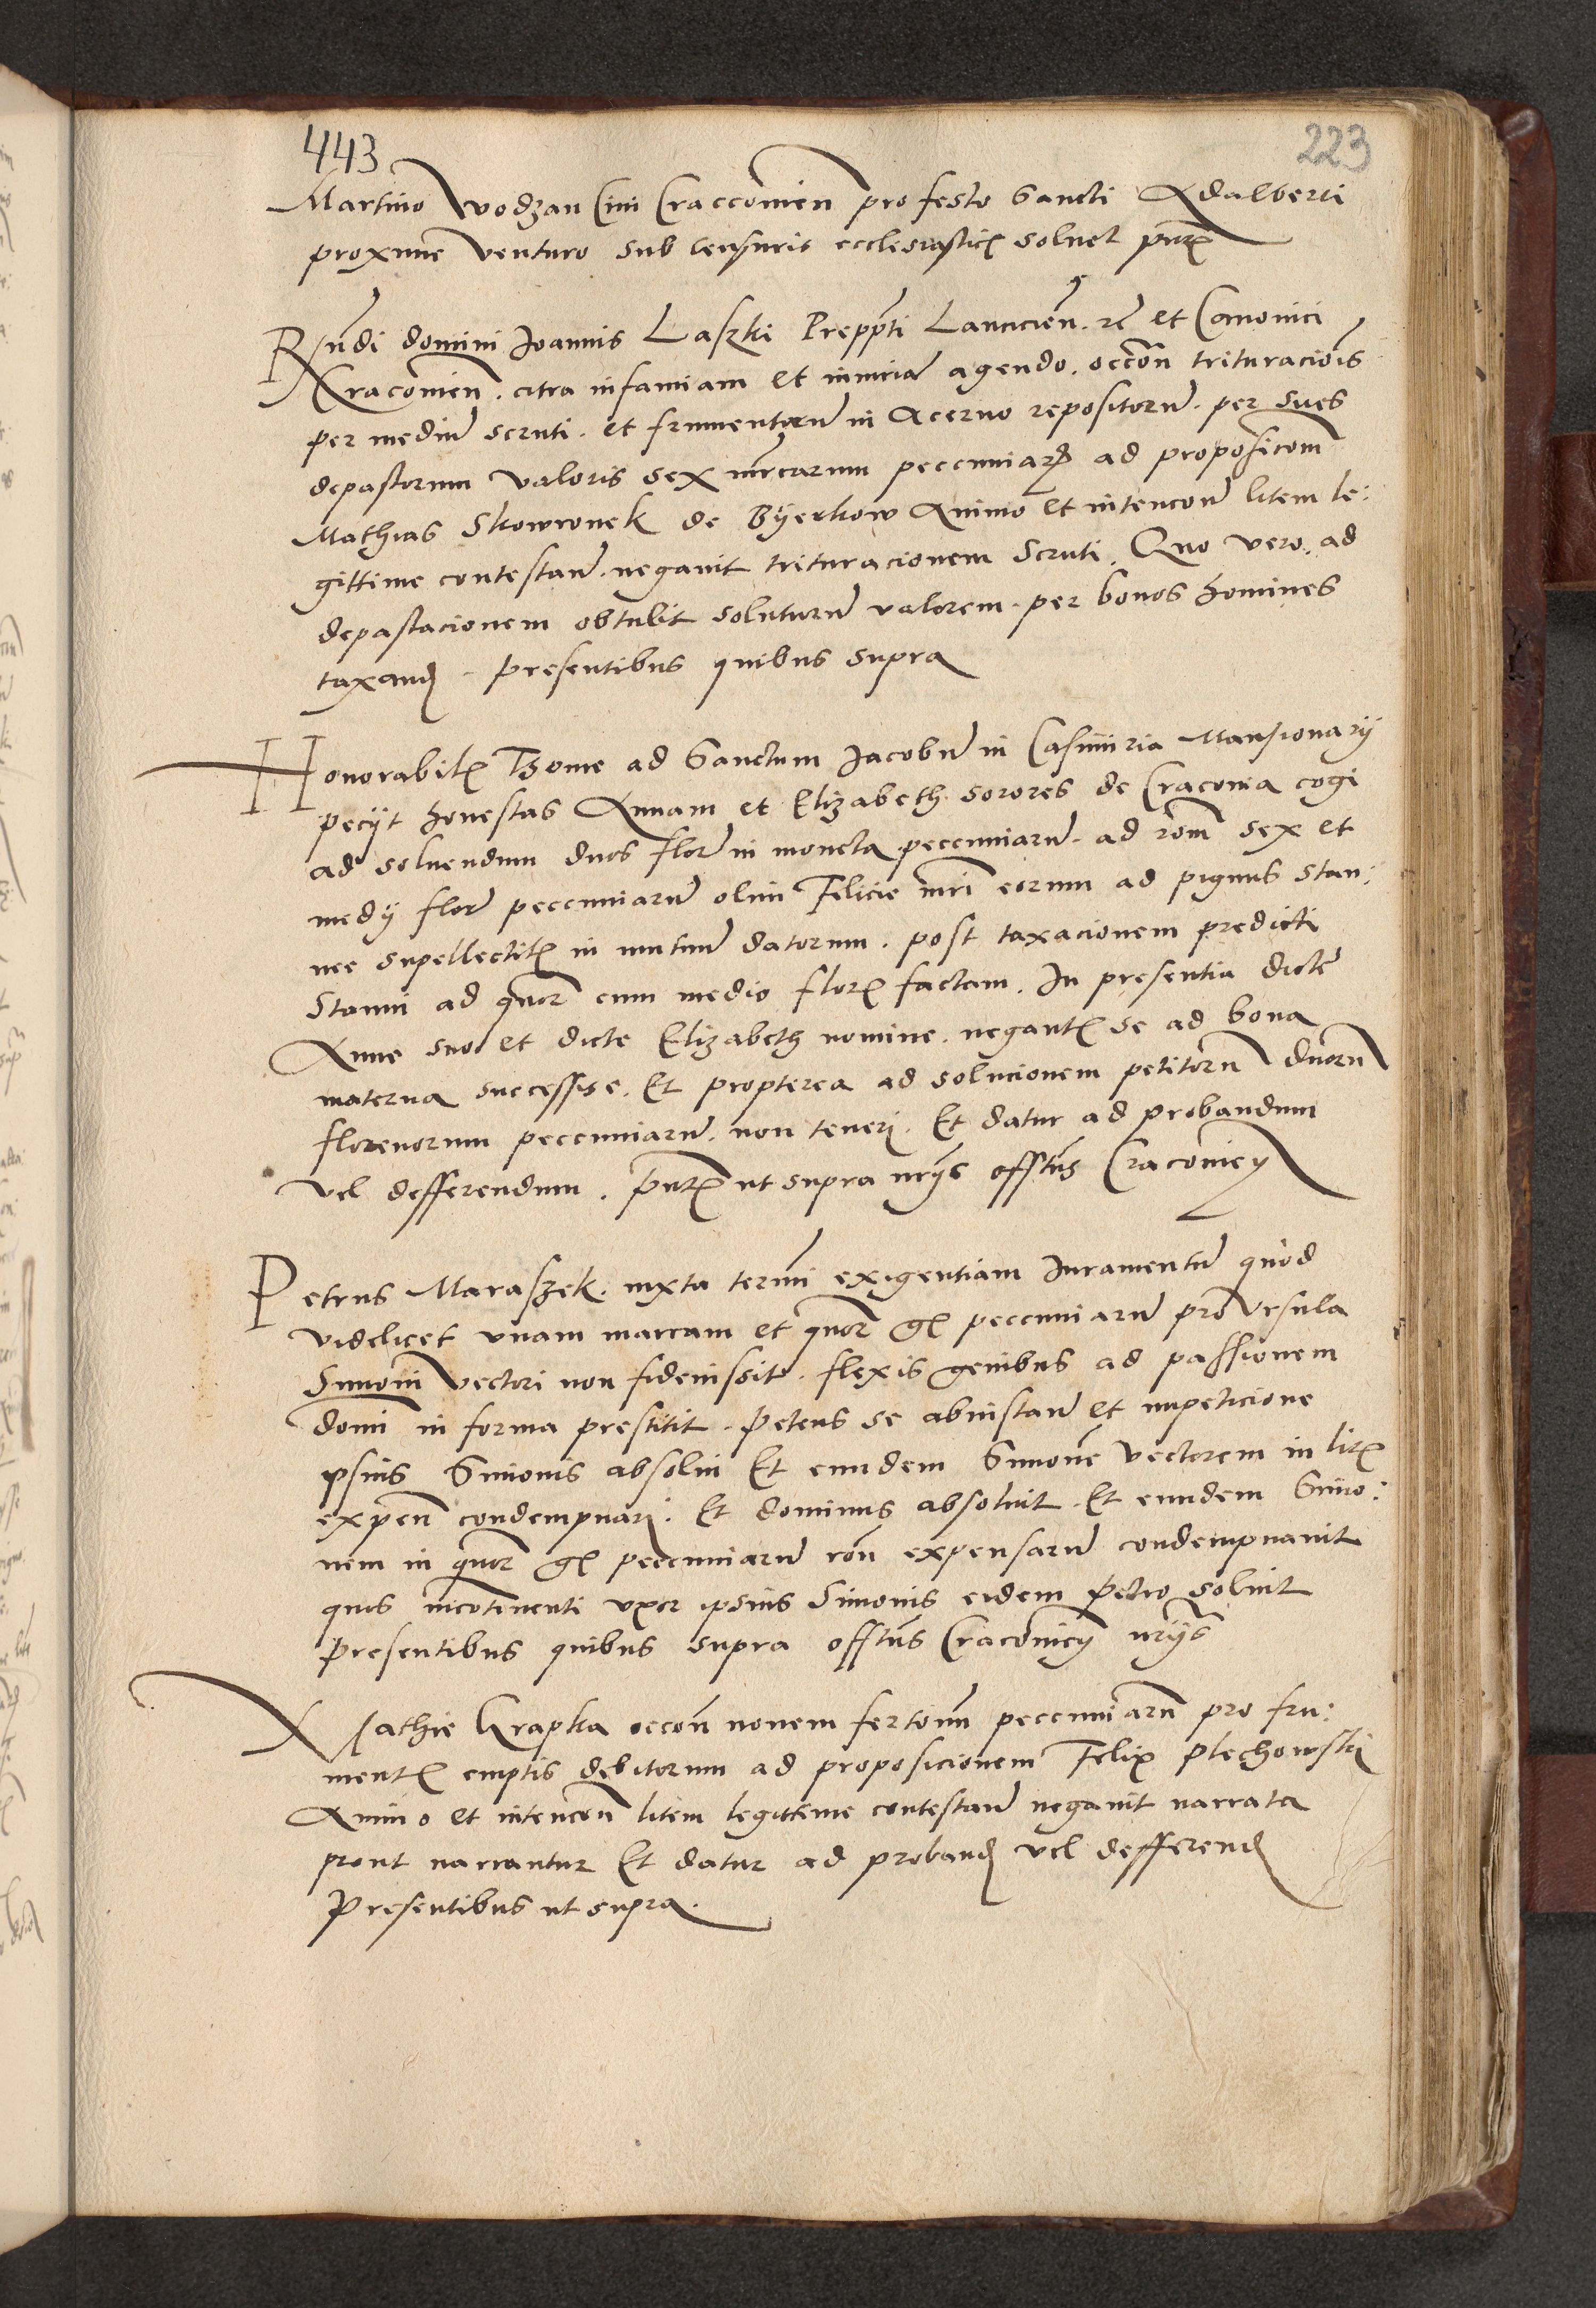 443
223
Martino wodzan Civi Craccovien pro festo Sancti Adalberti
proxime venturo sub censuris ecclesiasticis solvet pntibus
Rundi domini Joannis Laszki Preppti Lancicien. et Canonici
Cracovien. citra infamiam et iniuria agendo. occon trituracionis
per mediu scruti. et frumentoru in Acervo repositoru. per sues
depastorum valoris sex mrcarum peccuniar ad propositom
Mathias Skowronek de Byerkow Animo et intencon litem le:
gittime contestan. negavit trituracionem scruti. Quo vero ad
depastacionem obtulit soluturu valorem. per bonos homines
taxand. presentibus quibus supra
Honorabilis Thome ad Sanctum Jacobu in Casimiria Mansionarij
pecijt honestas Annam et Elizabeth sorores de Cracovia cogi
ad solvendum duos flor in moneta peccuniaru. ad rom sex et
medij flor peccuniaru olim Felicie mri eorum ad pignus Stan:
nee supellectilis in mutuu datorum. post taxacionem predicti
Stanni ad quor cum medio floris factam. In presentia dicte
Anne suo et dicte Elizabeth nomine. negantis se ad bona
materna successisse. Et propterea ad solucionem petitoru duoru
florenorum peccuniaru. non teneri. Et datur ad probandum
vel defferendum. pntibus ut supra nrijs offtus Cracovien
Petrus Maraszek. iuxta termi exigentiam Iuramentu quod
videlicet unam marcam et quor gs peccuniaru pro Ursula
Simoni vectori non fideiussit. flexis genibus ad passionem
domi in forma prestitit. Petens se ab instan et impeticione
ipsius Simonis absolvi Et eundem Simone vectorem in litis
expen condempnari. Et dominus absolvit. Et eundem Simo:
nem in quor gs peccuniaru ron expensaru condempnavit
quos incotinenti uxor ipsius Simonis eidem Petro solvit
Presentibus quibus supra offtus Cracovien nrijs
Mathie Krapka occon novem fertonu peccuniaru pro fru:
mentis emptis debitorum ad proposicionem Felix Plechowski
Animo et intencon litem legittime contestan negavit narrata
prout narrantur Et datur ad proband vel defferend
Presentibus ut supra.